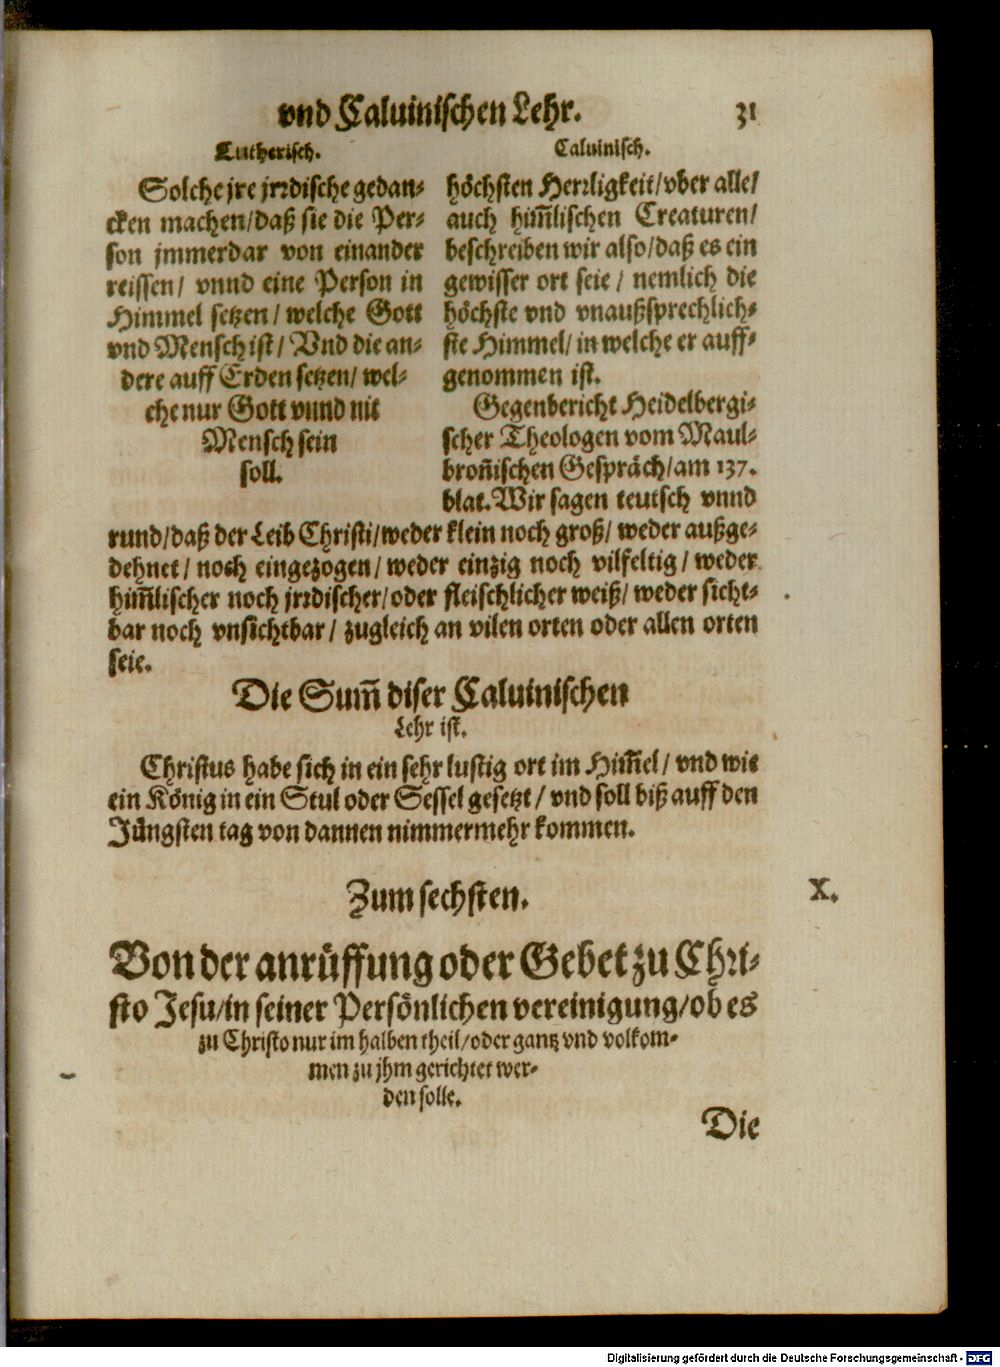 vnd Caluinischen Lehr. 31
Lutherisch.
Solche jre jrrdische gedan-
cken machen/daß sie die Per-
son jmmerdar von einander
reissen/ vnnd eine Person in
Himmel setzen/ welche Gott
vnd Mensch ist/ Vnd die an-
dere auff Erden setzen/ wel-
che nur Gott vnnd nit
Mensch sein
soll.
Caluinisch.
höchsten Herrligkeit/vber alle/
auch him̃lischen Creaturen/
beschreiben wir also/daß es ein
gewisser ort seie/ nemlich die
höchste vnd vnaußsprechlich-
ste Himmel/ in welche er auff-
genommen ist.
Gegenbericht Heidelbergi-
scher Theologen vom Maul-
bron̄ischen Gespräch/am 137.
blat. Wir sagen teutsch vnnd
rund/daß der Leib Christi/weder klein noch groß/ weder außge-
dehnet/ noch eingezogen/ weder einzig noch vilfeltig/ weder
him̃lischer noch jrrdischer/oder fleischlicher weiß/ weder sicht-
bar noch vnsichtbar/ zugleich an vilen orten oder allen orten
seie.
Die Sum̃ diser Caluinischen
Lehr ist.
Christus habe sich in ein sehr lustig ort im Him̃el/ vnd wie
ein König in ein Stul oder Sessel gesetzt/ vnd soll biß auff den
Jüngsten tag von dannen nimmermehr kommen.
Zum sechsten.
X.
Von der anrüffung oder Gebet zu Chri-
sto Jesu/in seiner Persönlichen vereinigung/ob es
zu Christo nur im halben theil/oder gantz vnd volkom-
men zu jhm gerichtet wer-
den solle.
Die
Digitalisierung gefördert durch die Deutsche Forschungsgemeinschaft - DFG